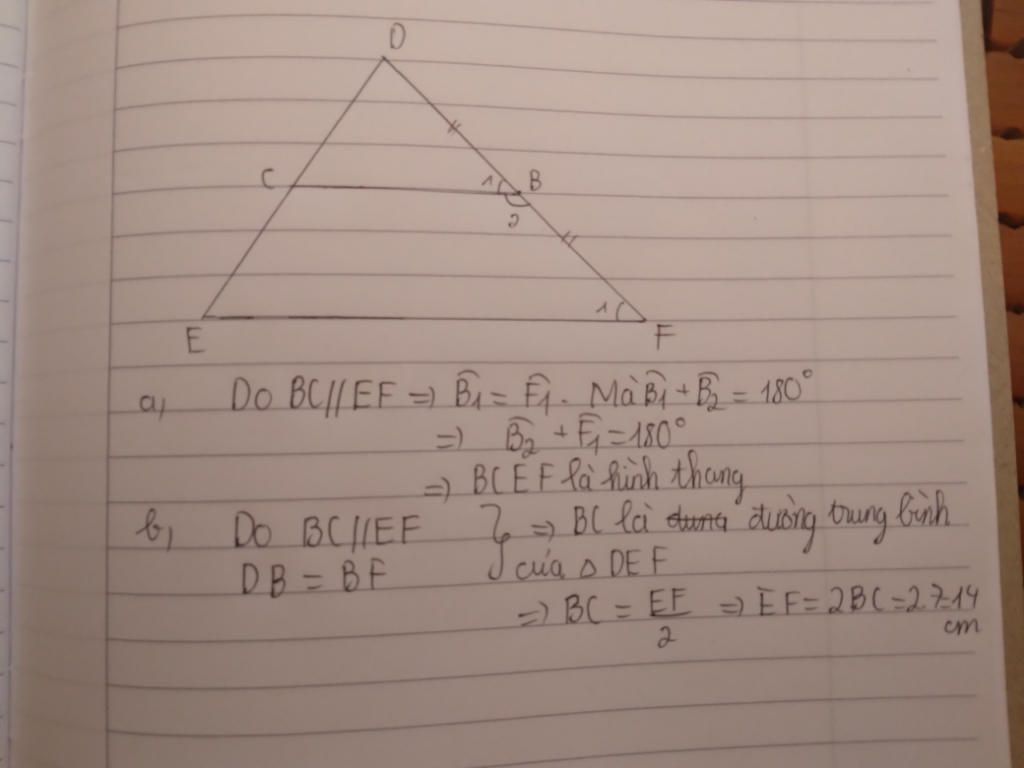 D
C 1 B
2
E 1 F
a, Do BC//EF => B̂1 = F̂1. Mà B̂1 + B̂2 = 180°
=> B̂2 + F̂1 = 180°
=> BCEF là hình thang
b, Do BC//EF } => BC là dung đường trung bình
DB = BF của △ DEF
=> BC = EF/2 => EF = 2BC = 2.7=14
cm